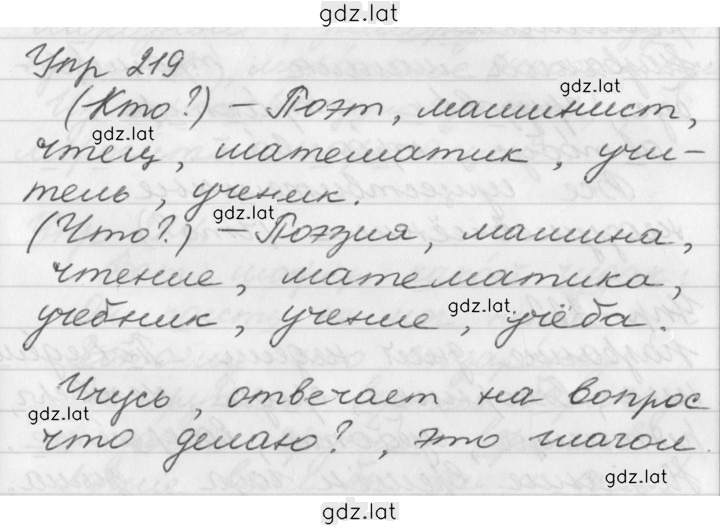 gdz.lat
Упр 219
(Кто?) – Поэт, машинист,
gdz.lat
gdz.lat
чтец, математик, учи-
тель, ученик.
gdz.lat
(Что?) – Поэзия, машина,
чтение, математика,
gdz.lat
учебник, учение, учёба.
Учусь, отвечает на вопрос
gdz.lat
что делаю?, это глагол.
gdz.lat
gdz.lat